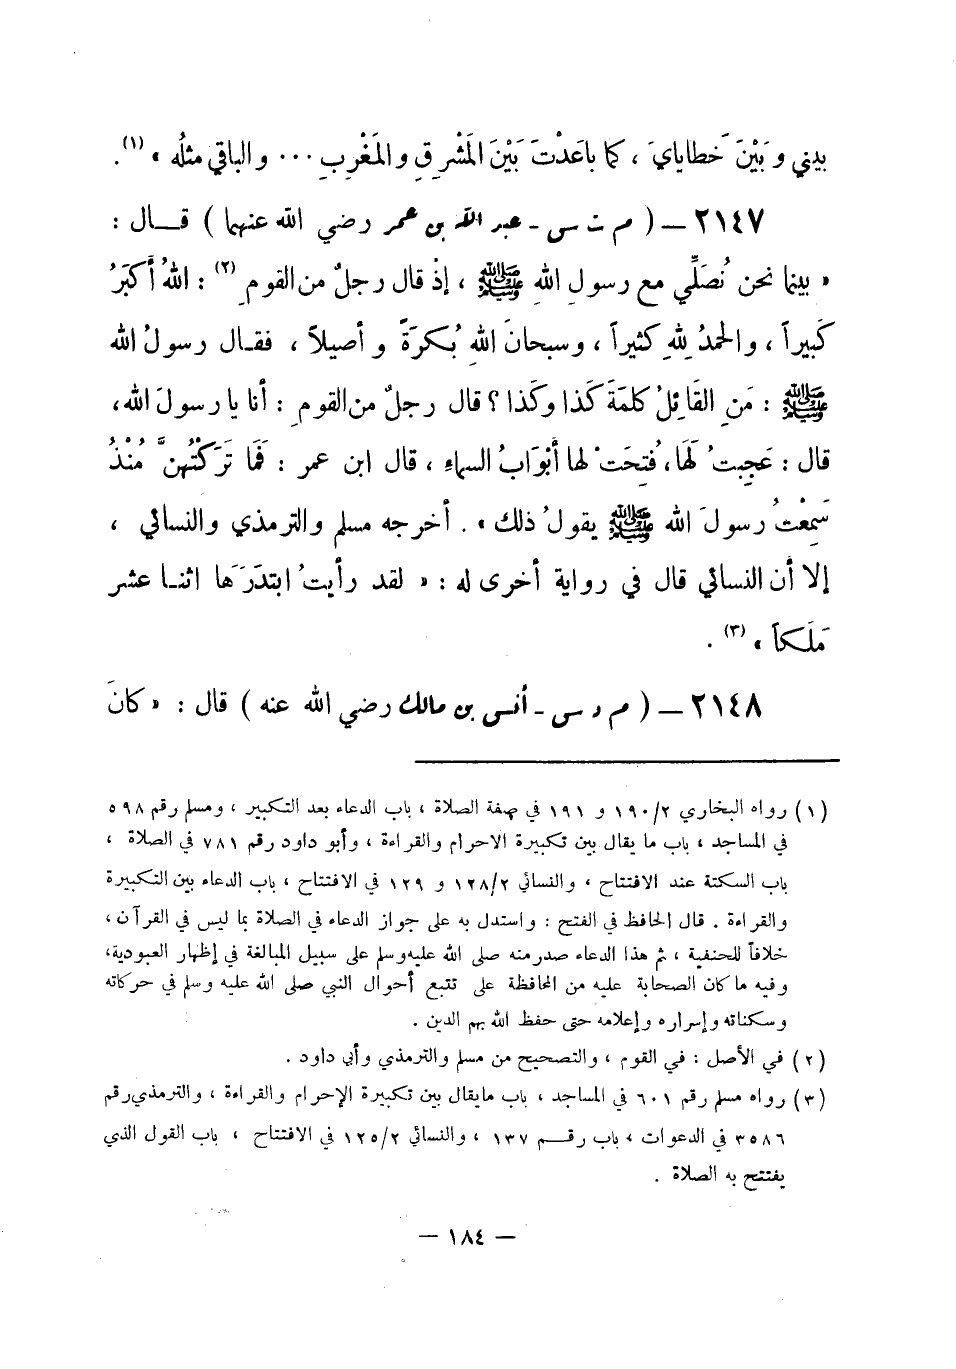 بيني وبَيْنَ خطايايَ ، كما باعَدْتَ بَيْنَ المَشْرِقِ والمَغْرِبِ ... والباقي مثلُه » (١).
٢١٤٧ ــ ( م ت س ـ عبد الله بن عمر رضي الله عنهما ) قــال :
« بينما نحن نُصَلِّي مع رسولِ اللهِ ﷺ ، إذْ قال رجلٌ من القومِ (٢) : اللهُ أَكبَرُ
كَبيراً ، والحمدُ للهِ كثيراً ، وسبحانَ اللهِ بُكرَةً وأصيلاً ، فقـال رسولُ الله
ﷺ : مَنِ القَائِلُ كلمَةَ كَذا وكَذا ؟ قال رجلٌ من القومِ : أنا يا رسولَ الله،
قال : عَجِبتُ لَهَا، فُتِحَتْ لها أَبْوَابُ السماءِ ، قال ابن عمر : فَمَا تَرَكْتُهُنَّ مُنْذُ
سَمِعْتُ رسولَ الله ﷺ يقولُ ذلك » . أخرجه مسلم والترمذي والنسائي ،
إلا أن النسائي قال في رواية أخرى له : « لقد رأيتُ ابتدَرَهَا اثنـا عشر
مَلَكاً » (٣) .
٢١٤٨ ــ ( م د س ـ أنس بن مالك رضي الله عنه ) قال : « كانَ
(١) رواه البخاري ١٩٠/٢ و ١٩١ في صفة الصلاة ، باب الدعاء بعد التكبير ، ومسلم رقم ٥٩٨
في المساجد ، باب ما يقال بين تكبيرة الاحرام والقراءة ، وأبو داود رقم ٧٨١ في الصلاة ،
باب السكتة عند الافتتاح ، والنسائي ١٢٨/٢ و ١٢٩ في الافتتاح ، باب الدعاء بين التكبيرة
والقراءة . قال الحافظ في الفتح : واستدل به على جواز الدعاء في الصلاة بما ليس في القرآن ،
خلافاً للحنفية ، ثم هذا الدعاء صدر منه صلى الله عليه وسلم على سبيل المبالغة في إظهار العبودية،
وفيه ما كان الصحابة عليه من المحافظة على تتبع أحوال النبي صلى الله عليه وسلم في حركاته
وسكناته وإسراره وإعلامه حتى حفظ الله بهم الدين .
(٢) في الأصل : في القوم ، والتصحيح من مسلم والترمذي وأبي داود .
(٣) رواه مسلم رقم ٦٠١ في المساجد ، باب ما يقال بين تكبيرة الإحرام والقراءة ، والترمذي رقم
٣٥٨٦ في الدعوات ، باب رقــم ١٣٧ ، والنسائي ١٢٥/٢ في الافتتاح ، باب القول الذي
يفتتح به الصلاة .
— ١٨٤ —